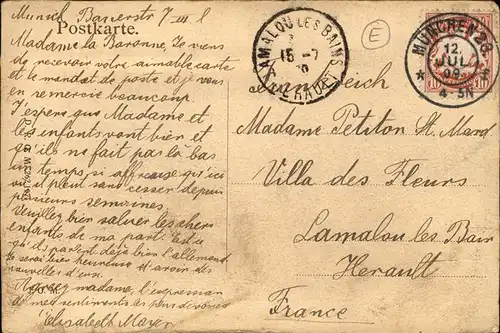 Munich Bauerstr 7 III l
Postkarte.
Madame la Baronne, Je viens
de recevoir votre aimable carte
et le mandat de poste et je vous
en remercie beaucoup.
J'espère que Madame et
les enfants vont bien et
qu'ils ne fait pas là bas
un temps si affreuse qu'ici
où il pleut sans cesser depuis
plusieurs semaines.
Veuillez bien saluer les chers
enfants de ma part. Est-ce
qu'ils parlent déjà bien l'allemand
Je serai bien heureuse d'avoir des
nouvelles d'eux.
madame, l'expression
de mes sentiments les plus dévoués
Elisabeth Mayer
LAMALOU LES BAINS
15 -7
HERAULT
E
MÜNCHEN
12.
JUL
09.
4-5N
Frankreich
Madame Petiton St. Mard
Villa des Fleurs
Lamalou les Bain
Herault
France